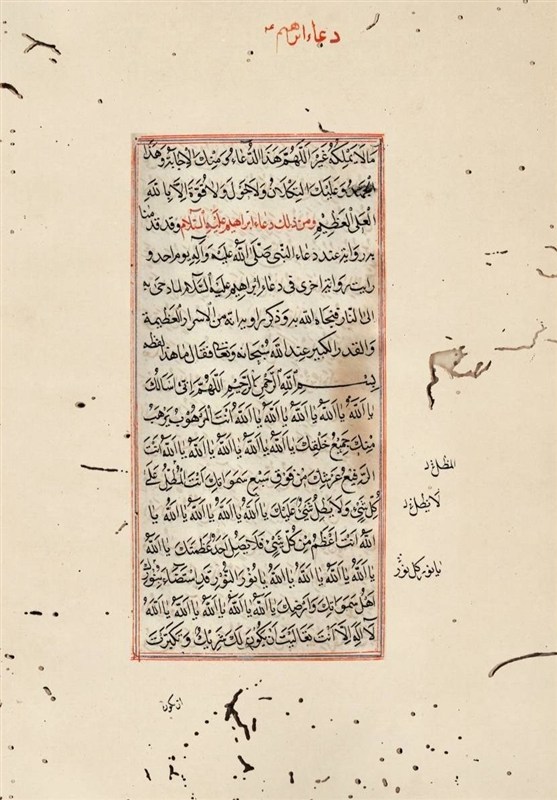 دعاء ابرهیم ع
ما لا يملكه غيرك اللهم هذا الدعاء ومنك الاجابة وهذا
الجهد وعليك التكلان ولا حول ولا قوة الا بالله
العلى العظيم ومن ذلك دعاء ابراهيم عليه السلام وقد قدمنا
رواية عند دعاء النبى صلى الله عليه وآله يوم احد و
رايت رواية اخرى فى دعاء ابراهيم عليه السلام لما دحى به
الى النار فنجاه الله به وذكر راويه انه من الاسرار العظيمة
والقدر الكبير عند الله سبحانه وتعالى فقال ما هذا لفظه
بسم الله الرحمن الرحيم اللهم انى اسالك
يا الله يا الله يا الله يا الله يا الله يا الله انت المرهوب يرهب
منك جميع خلقك يا الله يا الله يا الله يا الله يا الله انت
الرفيع عرشك من فوق سبع سمواتك انت المظل على
كل شئ ولا يظل شئ عليك يا الله يا الله يا الله يا الله يا
الله انت اعظم من كل شئ فلا يصل احد عظمتك يا الله
يا الله يا الله يا الله يا الله يا نور النور قد استضاء بنورك
اهل سمواتك وارضك يا الله يا الله يا الله يا الله يا الله
لا اله الا انت تعاليت ان يكون لك شريك وتكبرت
المظل
لا يظل
يا نور كل نور
ان يكون